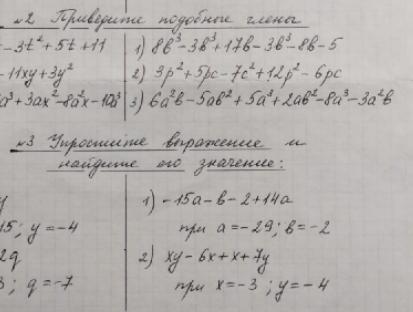 №2 Приведите подобные члены
-3t²+5t+11
1) 8b³-3b³+17b-3b³-8b-5
-11xy+3y²
2) 3p²+5pc-7c²+12p²-6pc
a³+3ax²-8a²x-10a³
3) 6a²b-5ab²+5a³+2ab²-8a³-3a²b
№3 Упростите выражение и
найдите его значение:
y
1) -15a-b-2+14a
15; y=-4
при a=-29; b=-2
2q
2) xy-6x+x+7y
3; q=-7
при x=-3; y=-4